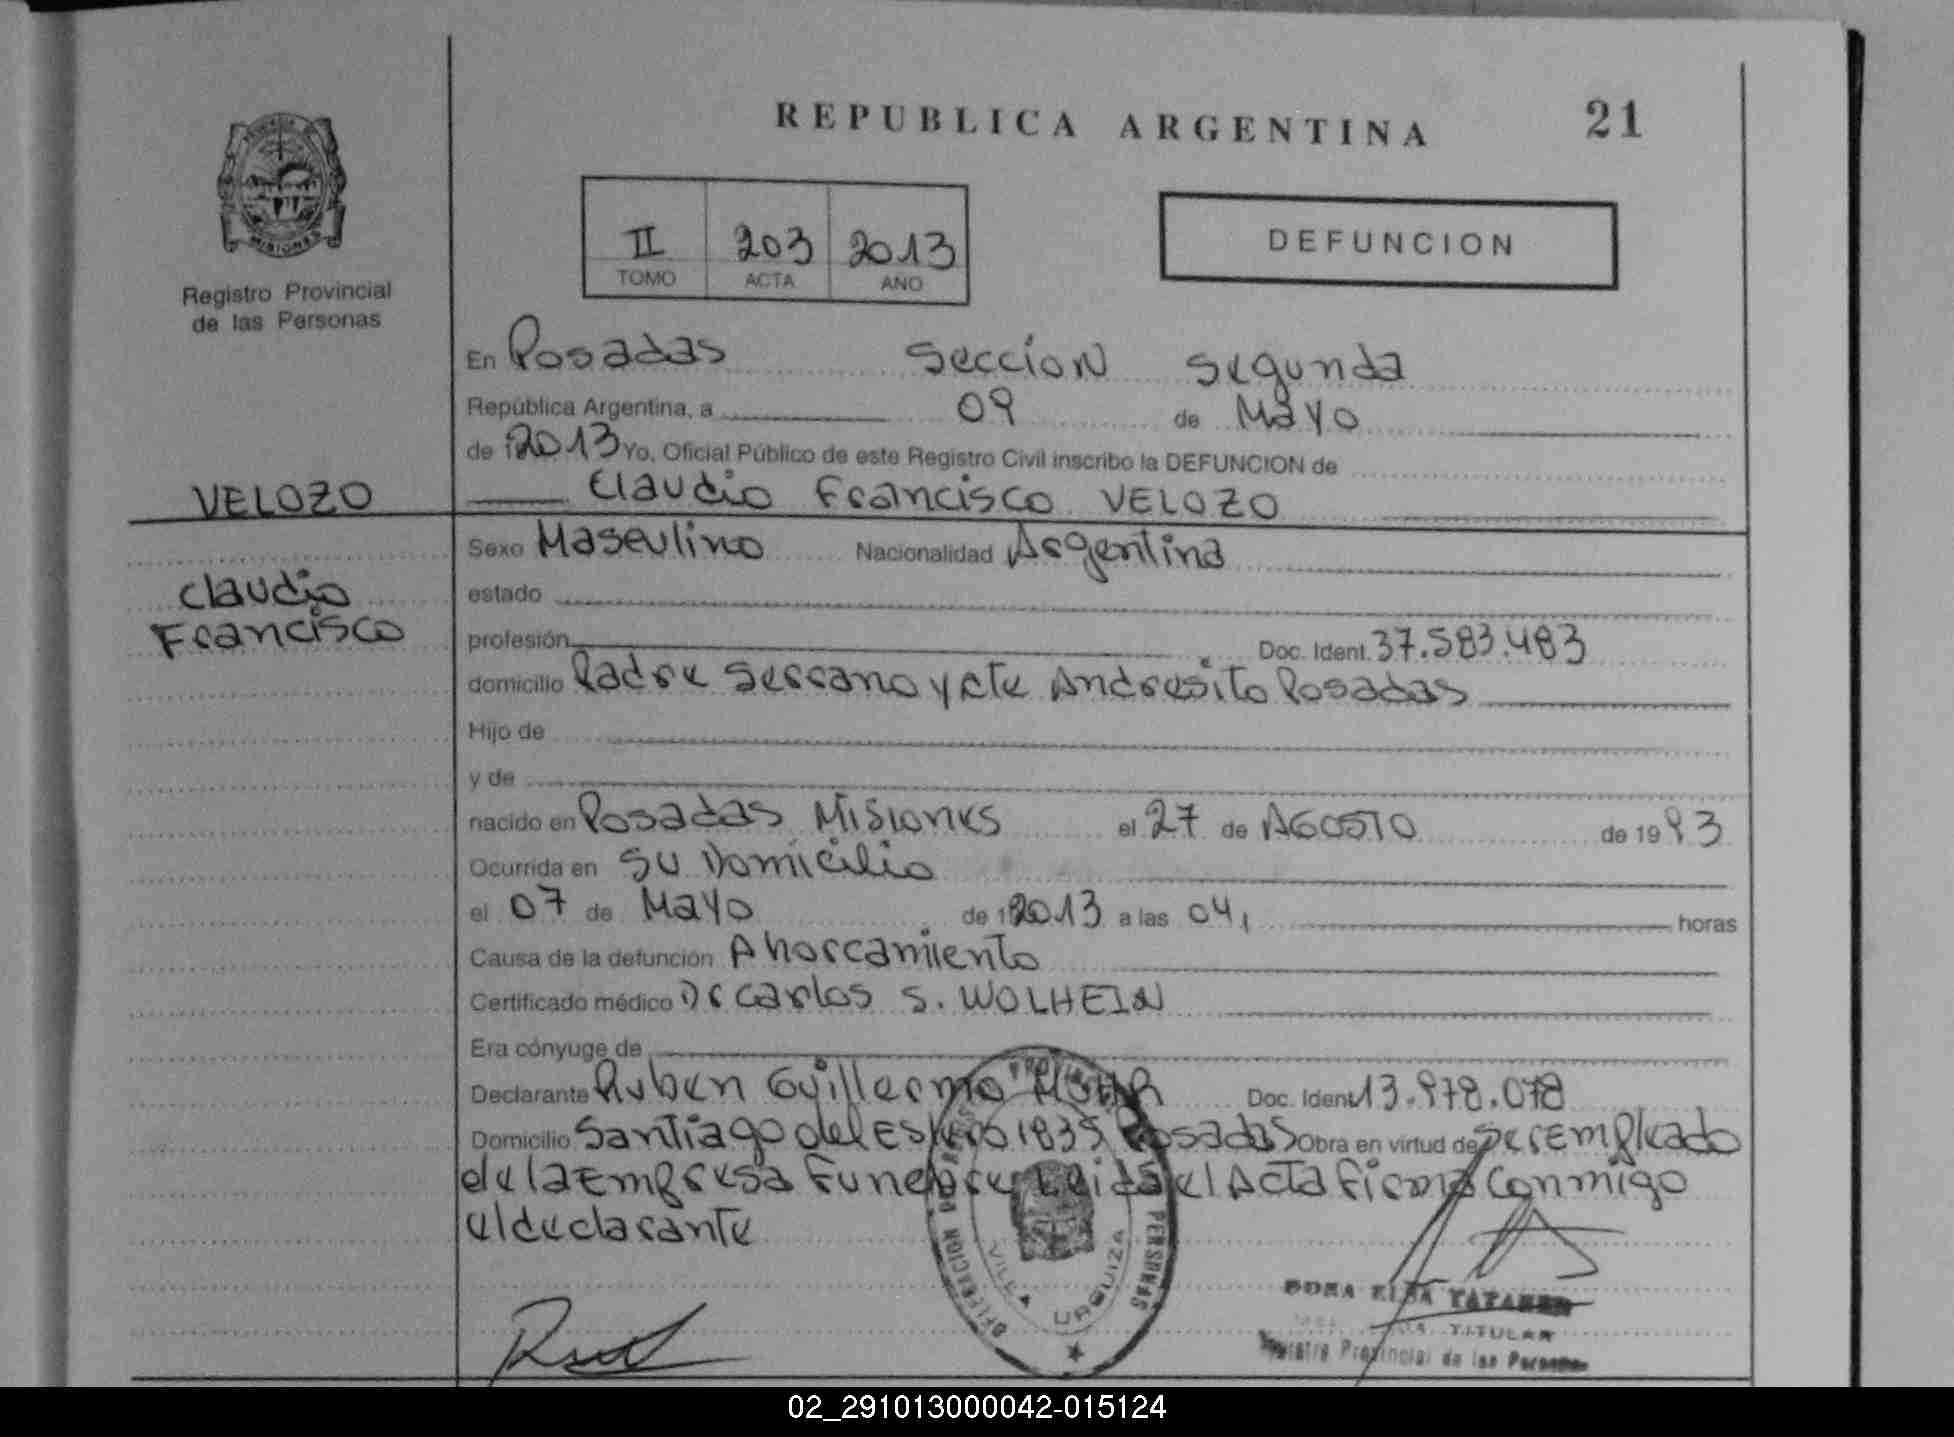 REPUBLICA ARGENTINA 21
PROVINCIA DE
MISIONES
Registro Provincial
de las Personas
II 203 2013
TOMO ACTA AÑO
DEFUNCION
En Posadas Seccion Segunda
República Argentina, a 09 de Mayo
de 2013 Yo, Oficial Público de este Registro Civil inscribo la DEFUNCION de
VELOZO
Claudio Francisco VELOZO
Claudio
Francisco
Sexo Masculino Nacionalidad Argentina
estado
profesión Doc. Ident. 37.583.483
domicilio Padre Serrano y cte Andresito Posadas
Hijo de
y de
nacido en Posadas Misiones el 27 de AGOSTO de 1993
Ocurrida en su Domicilio
el 07 de Mayo de 2013 a las 04, horas
Causa de la defunción Ahorcamiento
Certificado médico Dr Carlos S. WOLHEIN
Era cónyuge de
Declarante Ruben Guillermo Doc. Ident 13.978.078
Domicilio Santiago del Estero 1835 Posadas Obra en virtud de ser Empleado
de la Empresa Funebre Leida el Acta firma Conmigo
el declarante
DELEGACION PROVINCIAL PERSONAS
VILLA URQUIZA
DORA ELBA
TITULAR
Registro Provincial de las Personas
02_291013000042-015124